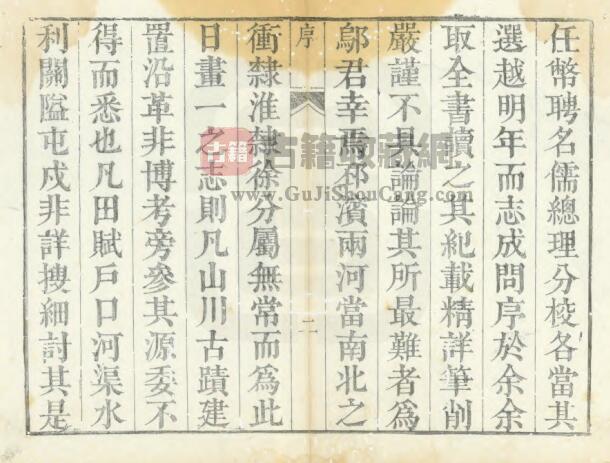 任幣聘名儒總理分校各當其
選越明年而志成問序於余余
取全書讀之其紀載精詳筆削
嚴謹不具論論其所最難者爲
鄔君幸焉邳濱兩河當南北之
序
二
衝隸淮隸徐分屬無常而爲此
日畫一之志則凡山川古蹟建
置沿革非博考旁參其源委不
得而悉也凡田賦戶口河渠水
利關隘屯戍非詳搜細討其是
古籍 古籍收藏網
www.GuJiShouCang.com